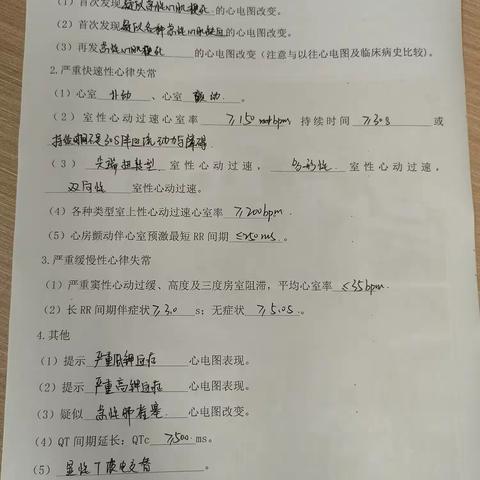 (1) 首次发现疑似急性心肌梗死的心电图改变。
(2) 首次发现疑似各种急性心肌缺血的心电图改变。
(3) 再发急性心肌梗死 的心电图改变（注意与以往心电图及临床病史比较)。
2.严重快速性心律失常
(1) 心室 扑动 、心室 颤动 。
(2) 室性心动过速心室率 ≥150 bpm 持续时间 ≥30s 或
持续时间不足30S伴血流动力学障碍
(3) 尖端扭转型 室性心动过速， 多形性 室性心动过速，
双向性 室性心动过速。
(4) 各种类型室上性心动过速心室率 ≥200bpm .
(5) 心房颤动伴心室预激最短 RR 间期 ≤250ms 。
3.严重缓慢性心律失常
(1) 严重窦性心动过缓、高度及三度房室阻滞，平均心室率 ≤35bpm .
(2) 长 RR 间期伴症状 ≥3.0 s; 无症状 ≥5.0s .。
4.其他
(1) 提示 严重低钾血症 心电图表现。
(2) 提示 严重高钾血症 心电图表现。
(3) 疑似 急性肺栓塞 心电图改变。
(4) QT 间期延长: QTc ≥500 ms.
(5) 显性T波电交替 。